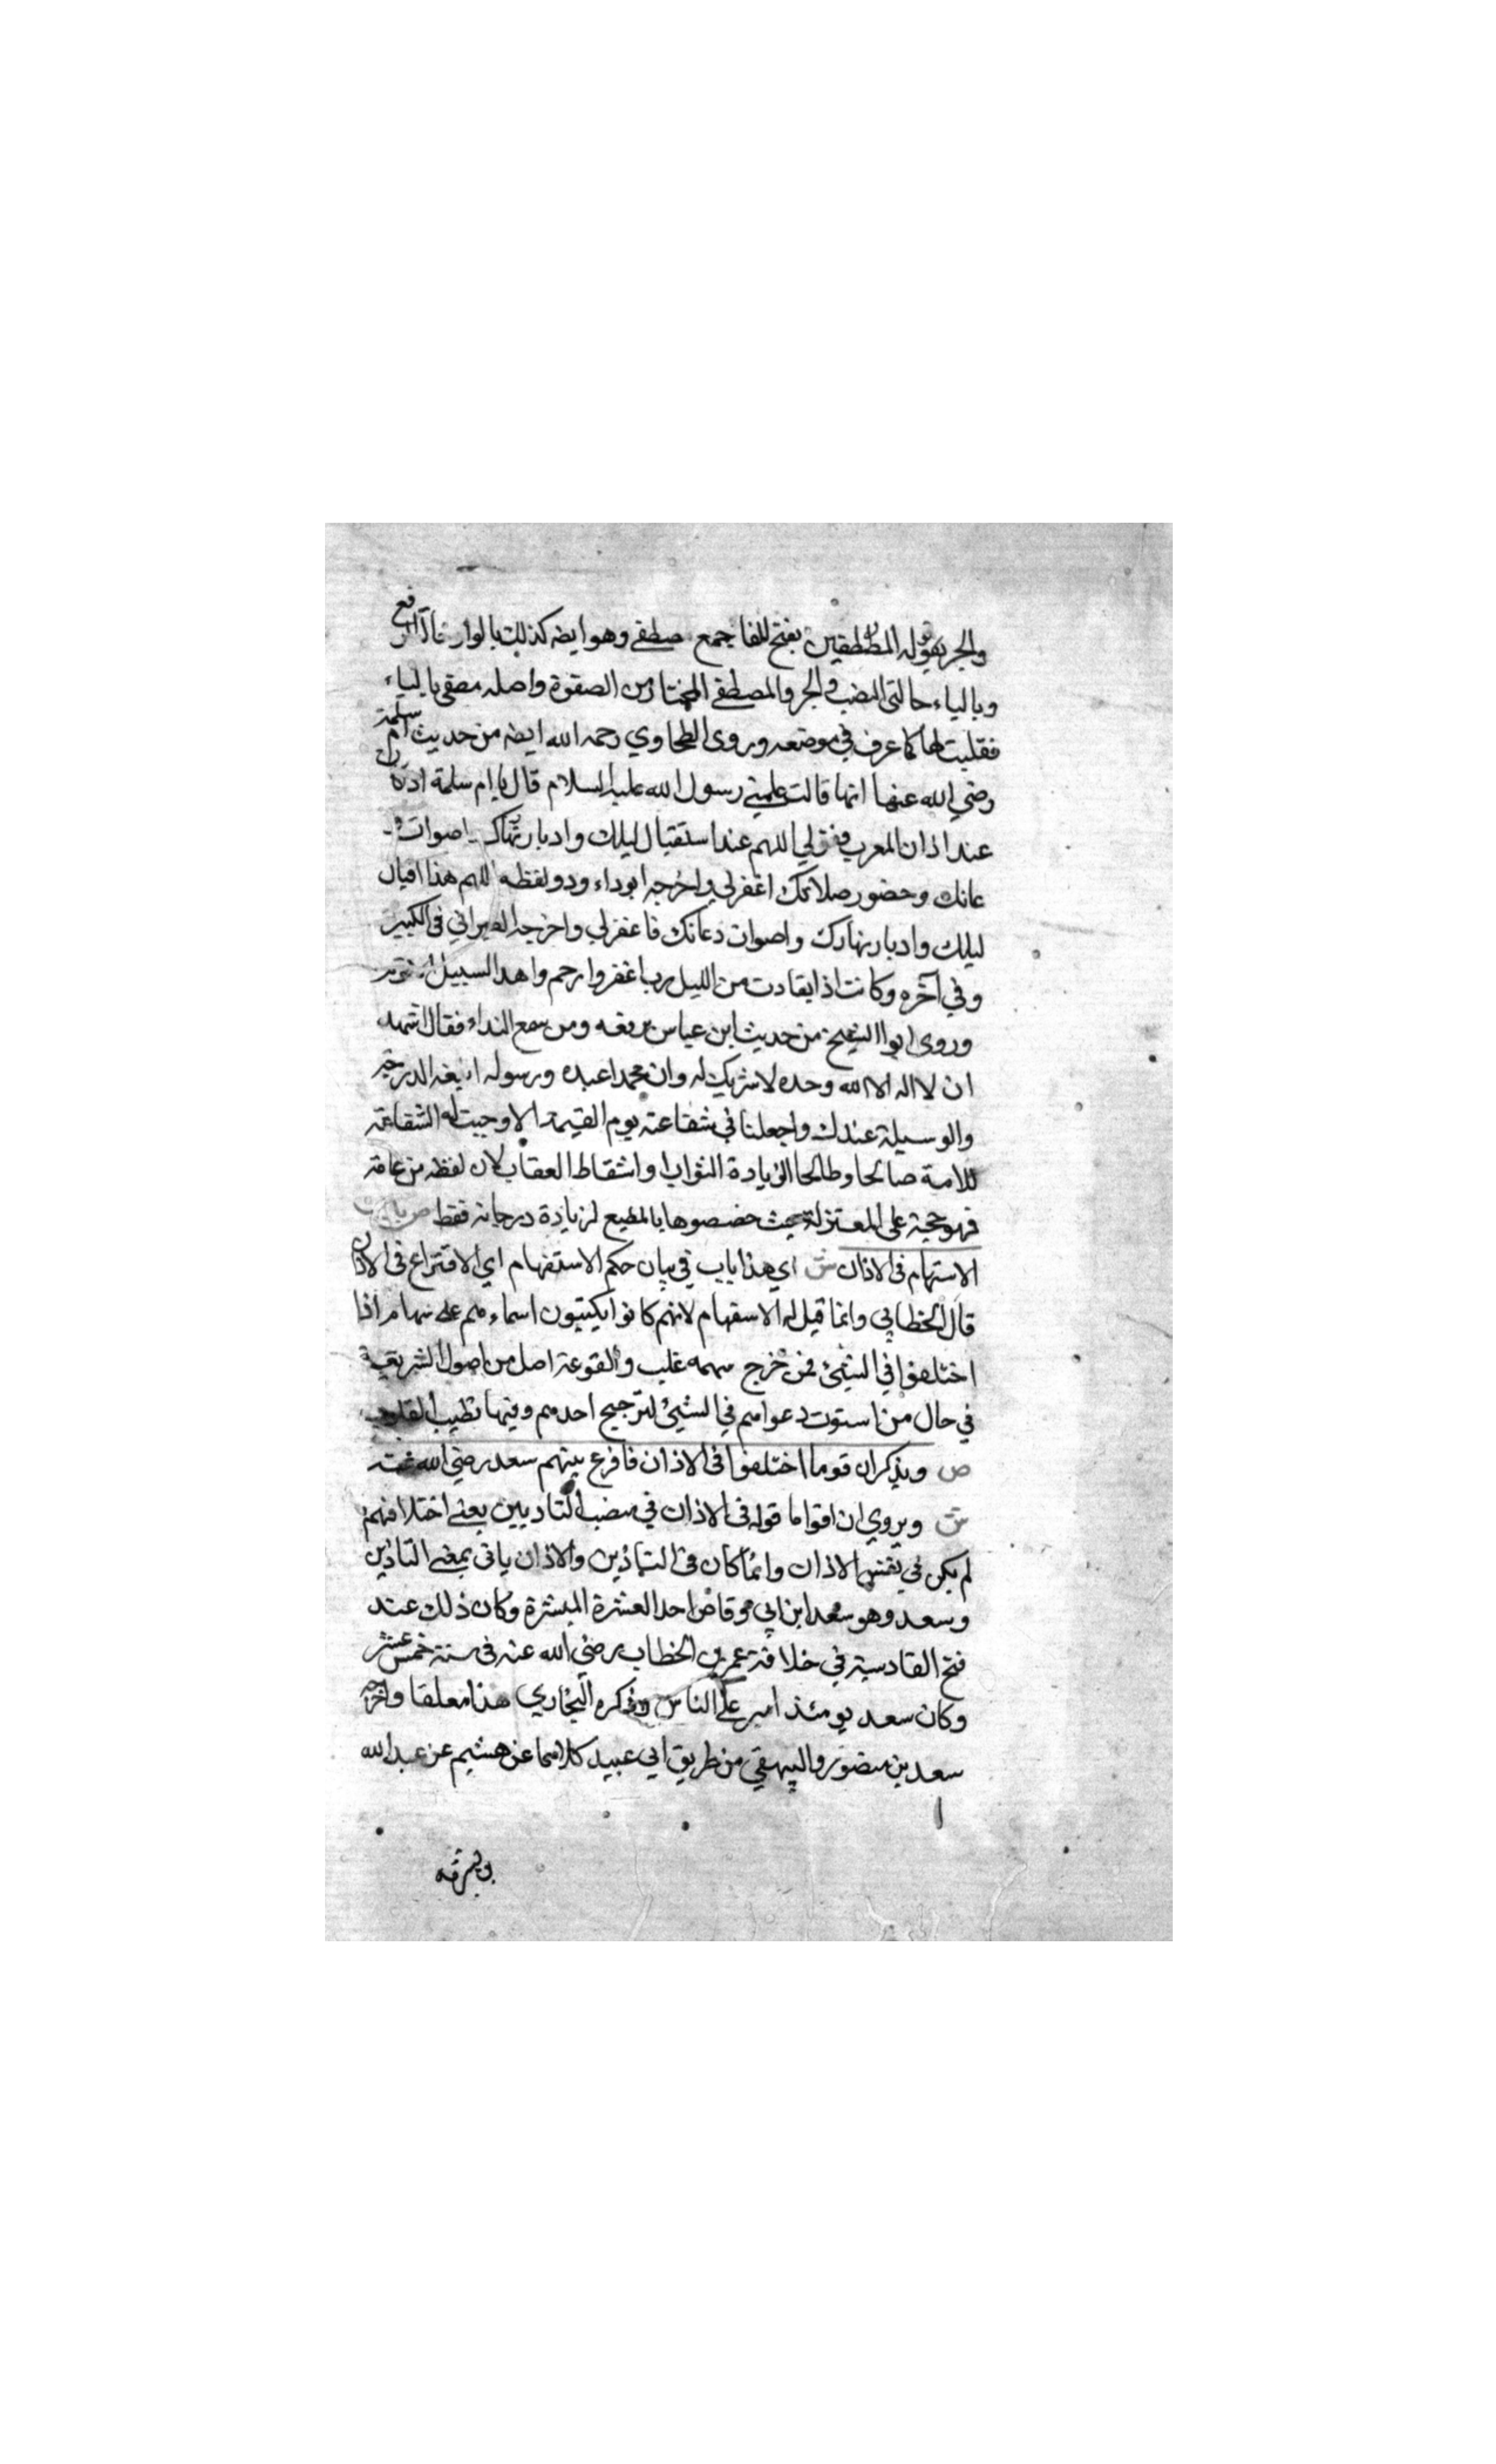 والجر يقوله المصطفين بفتح الفا جمع مصطفى وهو ايضه كذلك بالواو حالة الرفع
وبالياء حالتي النصب والجر والمصطفى المختار من الصفوة واصله مصتفى بالياء
فقلبت طا كما عرف في موضعه وروى الطحاوي رحمه الله ايضه من حديث ام سلمة
رضي الله عنها انها قالت علمني رسول الله عليه السلام قال يا ام سلمة اذا كان
عند اذان المعرب فقولي اللهم عند استقبال ليلك وادبار نهارك واصوات
عاتك وحضور صلاتك اغفرلي واخرجه ابو داءود ولفظه اللهم هذا اقبال
ليلك وادبار نهارك واصوات دعاتك فاغفرلي واخرجه الطبراني في الكبير
وفي آخره وكانت اذا تعارت من الليل رب اغفر وارحم واهد السبيل الاقوم
وروى ابوا الشيخ من حديث ابن عباس يرفعه ومن سمع النداء فقال اشهد
ان لا اله الا الله وحده لا شريك له وان محمدا عبده ورسوله ابلغه الدرجة
والوسيلة عندك واجعلنا في شفاعته يوم القيمة الا وجبت له الشفاعة
للامة صالحا وطالحا الزيادة الثواب او اسقاط العقاب لان لفظه من عامة
فهو حجة على المعتزلة حيث خصصوها بالمطيع لزيادة درجاته فقط ص باب
الاستهام في الاذان ش اي هذا باب في بيان حكم الاستفهام اي الاقتراع في الاذان
قال الخطابي وانما قيل له الاسفهام لانهم كانوا يكتبون اسماءهم على سهام اذا
اختلفوا في الشيئ فمن خرج سهمه غلب والقوعة اصل من اصول الشريعة
في حال من استوت دعواهم في الشيئ لترجيح احدهم وفيها تطيب القلوب
ص ويذكر ان قوما اختلفوا في الاذان فاقرع بينهم سعد رضي الله عنه
ش ويروي ان اقواما قوله في الاذان في منصب التاديين يعني اختلافهم
لم يكن في نفس الاذان وانما كان في التاذين والاذان ياتى بمعنى التاذين
وسعد وهو سعد ابن ابي وقاص احد العشرة المبشرة وكان ذلك عند
فتح القادسية في خلافة عمر بن الخطاب رضي الله عنه في سنة خمس عشر
وكان سعد يومئذ امير على الناس وذكره البخاري هذا معلقا واخرجه
سعد بن منصور والبيهقي من طريق ابي عبيد كلاهما عن هشيم عن عبد الله